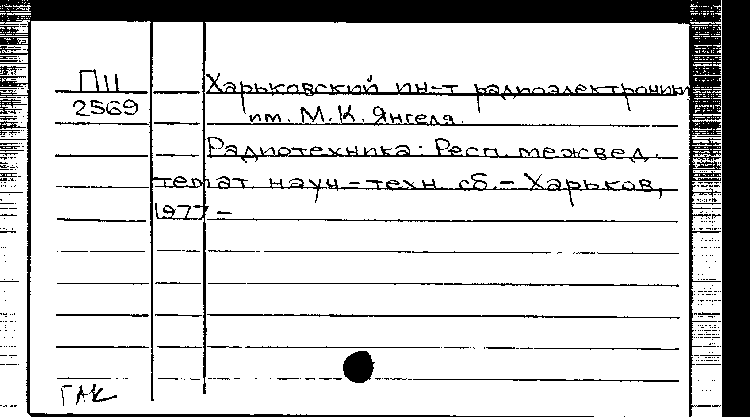 ПII
2569
Харьковский ин-т радиоэлектроники
им. М.К. Янгеля.
Радиотехника: Респ. межвед.
темат. науч-техн. сб. - Харьков,
1977 -
ГАК